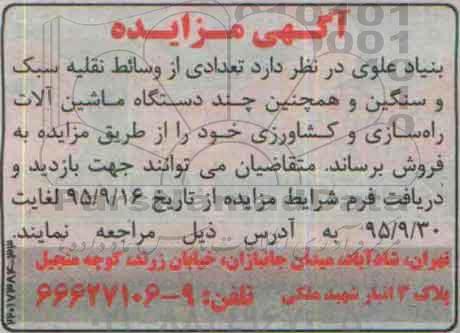 آگهی مزایده
بنیاد علوی در نظر دارد تعدادی از وسائط نقلیه سبک
و سنگین و همچنین چند دستگاه ماشین آلات
راهسازی و کشاورزی خود را از طریق مزایده به
فروش برساند. متقاضیان می توانند جهت بازدید و
دریافت فرم شرایط مزایده از تاریخ ۹۵/۹/۱۶ لغایت
۹۵/۹/۳۰ به آدرس ذیل مراجعه نمایند.
تهران، شادآباد، میدان جانبازان، خیابان زرند، کوچه منجیل
پلاک ۳ انبار شهید ملکی تلفن: ۹-۶۶۶۲۷۱۰۶